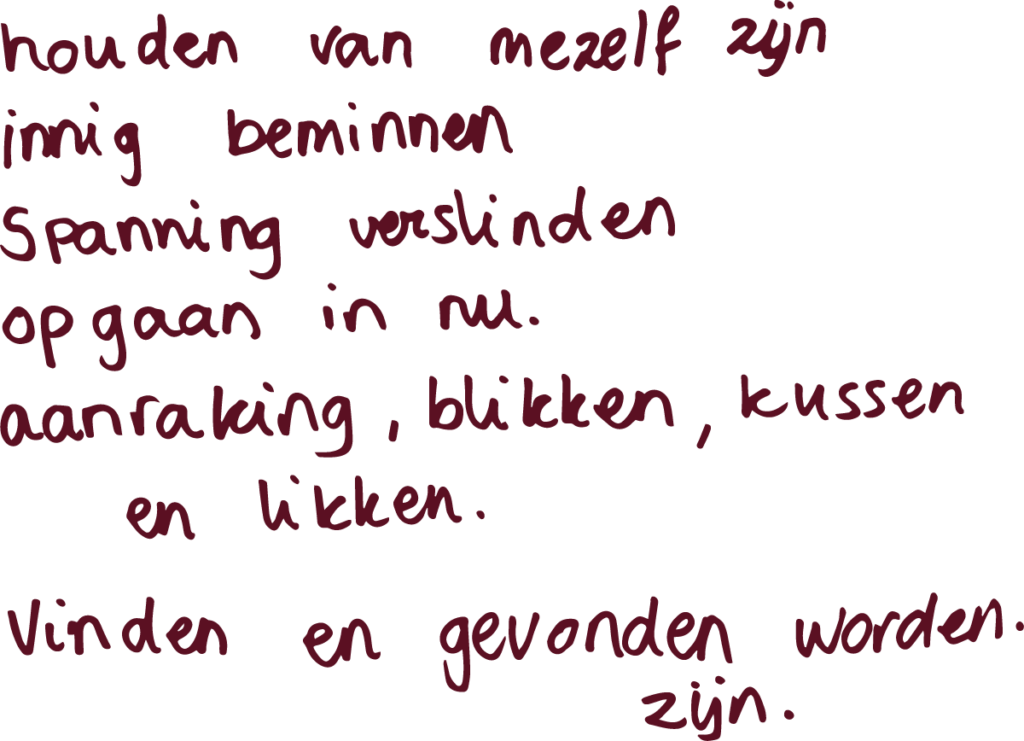 houden van mezelf zijn
innig beminnen
Spanning verslinden
opgaan in nu.
aanraking, blikken, kussen
en likken.
Vinden en gevonden worden.
zijn.